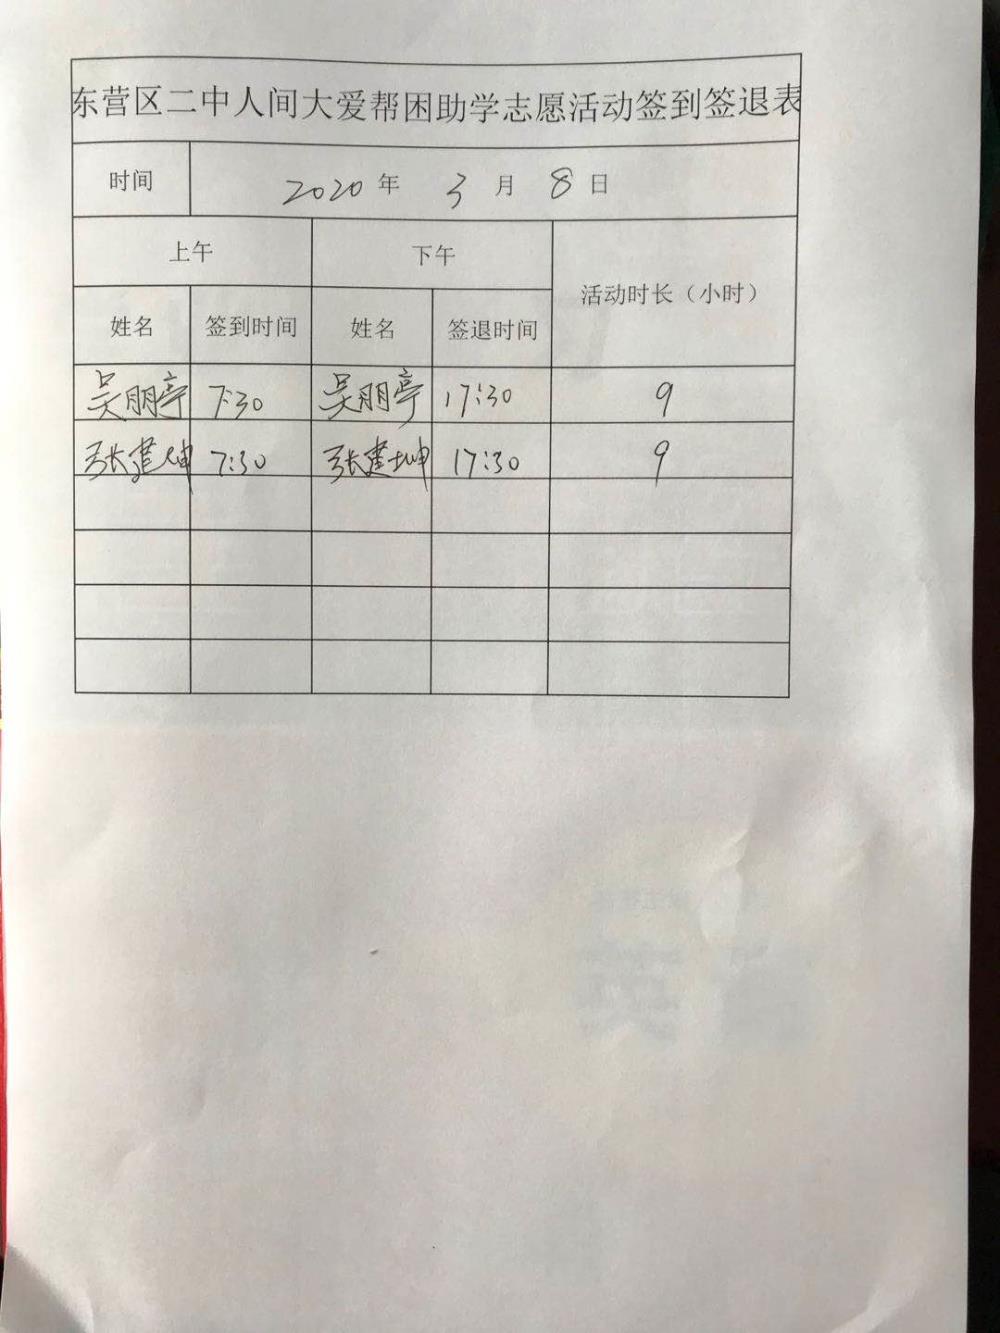 东营区二中人间大爱帮困助学志愿活动签到签退表
时间 2020 年 3 月 8 日
上午 下午 活动时长（小时）
姓名 签到时间 姓名 签退时间
吴朋亭 7:30 吴朋亭 17:30 9
张建坤 7:30 张建坤 17:30 9